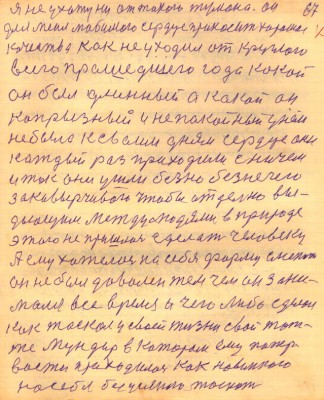 Я не ухожу ни от такого тумана. он 67
для меня любимого сердце приносит хорошее
качества как не уходил от круглого
всего прошедшего года какой
он был длинный а какой он
капризный и непокойный у ней
не была к своим дням сердце они
каждый раз приходили с ничем
и так они ушли безно безнечего
заковырчивого чтобы отделно
между людями в природе
этого не пришлось сделать человеку
А ему хотелось на себя форму сменить
он не был доволен тем чем он зани-
мался все время и чего либо сделал
как таскал у своей жизни свой тот-
же мундир в котором ему
приходилось как
на себе таскать